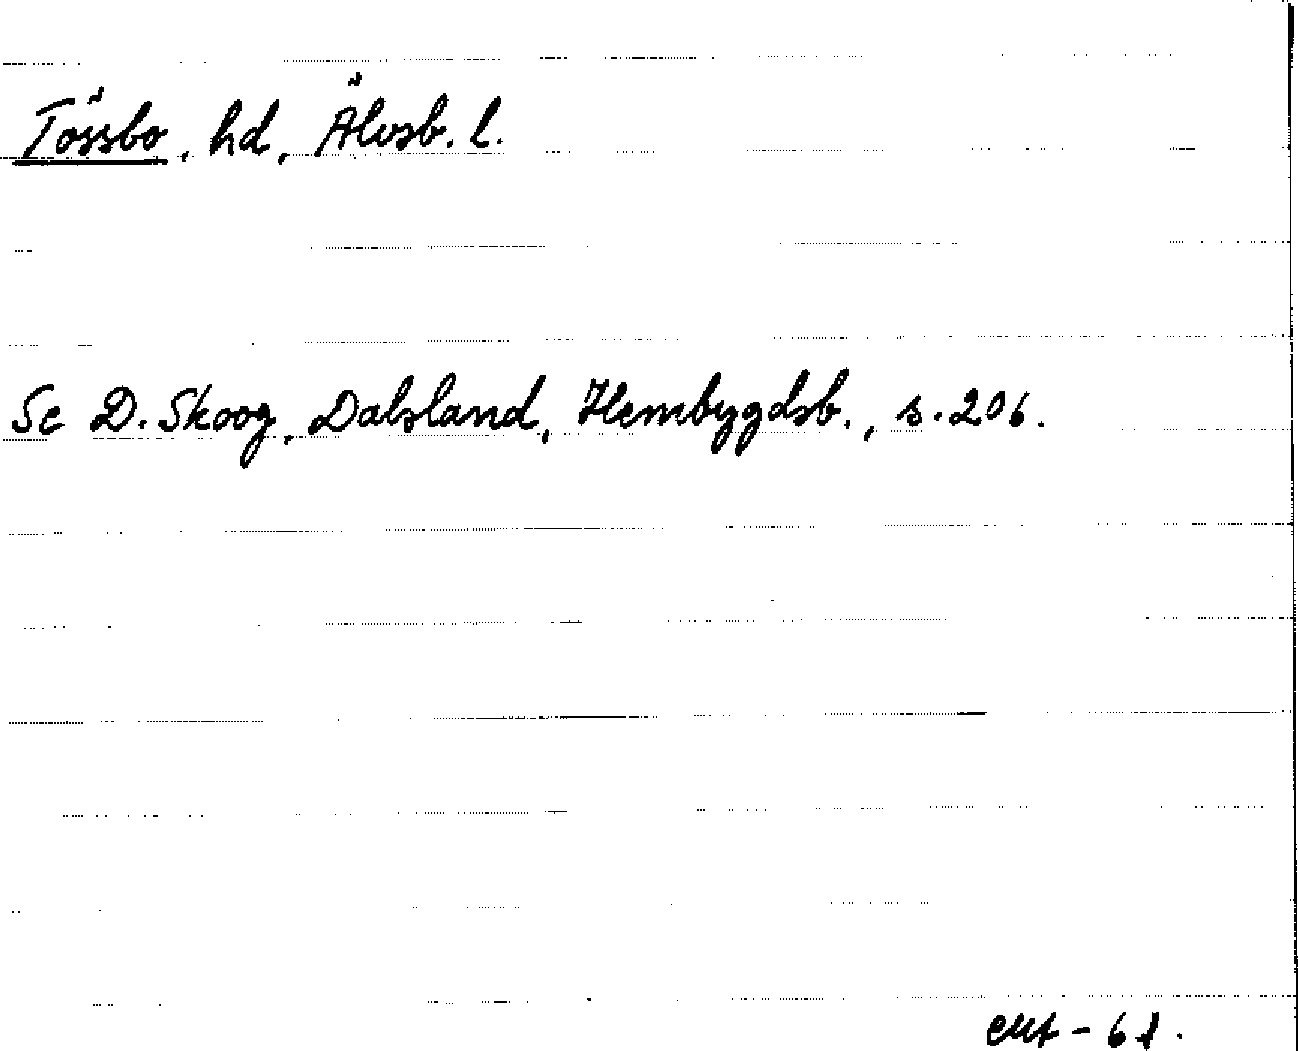 Tössbo, hd, Älvsb. l.
Se D. Skoog, Dalsland, Hembygdsb., s. 206.
- 61.